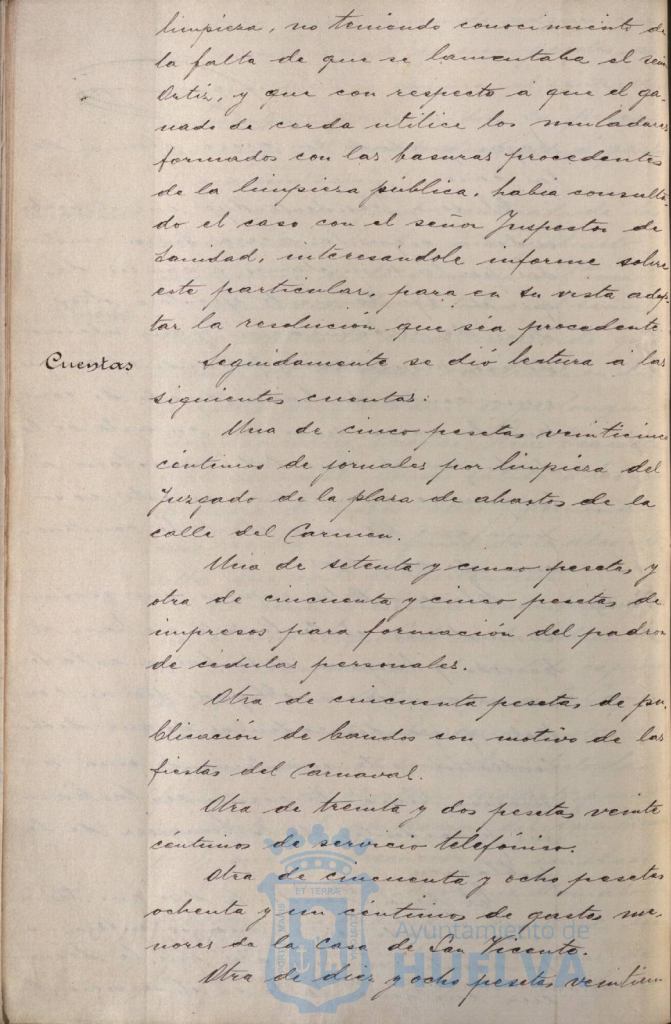 limpieza, no teniendo conocimiento de
la falta de que se lamentaba el señor
Ortiz, y que con respecto á que el ga-
nado de cerda utilice los muladares
formados con las basuras procedentes
de la limpieza pública, habia consulta-
do el caso con el señor Inspector de
Sanidad, interesándole informe sobre
este particular, para en su vista adop-
tar la resolución que séa procedente
Cuentas
Seguidamente se dió lectura á las
siguientes cuentas:
Una de cinco pesetas veinticinco
céntimos de jornales por limpieza del
Juzgado de la plaza de abastos de la
calle del Carmen.
Una de setenta y cinco pesetas y
otra de cincuenta y cinco pesetas de
impresos para formación del padron
de cédulas personales.
Otra de cincuenta pesetas de pu-
blicación de bandos con motivo de las
fiestas del Carnaval.
Otra de treinta y dos pesetas veinte
céntimos de servicio telefónico.
Otra de cincuenta y ocho pesetas
ochenta y un céntimos de gastos me-
nores de la Casa de San Vicente.
Otra de diez y ocho pesetas veintiun
Ayuntamiento de
HUELVA